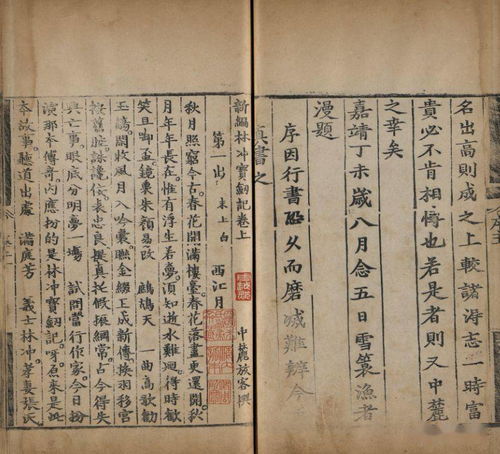 名出高則成之上較諸得志一時富
貴必不肯相博也若是者則又中麓
之幸矣
嘉靖丁未歲八月念五日雪簑漁者
漫題
序因行書恐久而磨滅難辨今
真書之
新編林冲寶劒記卷上 中麓放客撰
第一出 末上白 西江月
秋月照窮今古春花開滿樓臺春花落盡更還開秋
月年年長在惟有浮生若夢須知逝水難迴得時歡
笑且啣盃鏡裏朱顔易改 鷓鴣天 一曲高歌勸
玉觴開收風月入吟囊聯金綴玉成新傳換羽移宮
按舊腔詠讒佞表忠良提真托假振綱常古今得失
興亡事眼底分明夢一塲 試問當行作家今日扮
演那本傳奇内應扮的是林冲寶劒記呀原來是此
本故事聽道出處 滿庭芳 義士林冲妻張氏